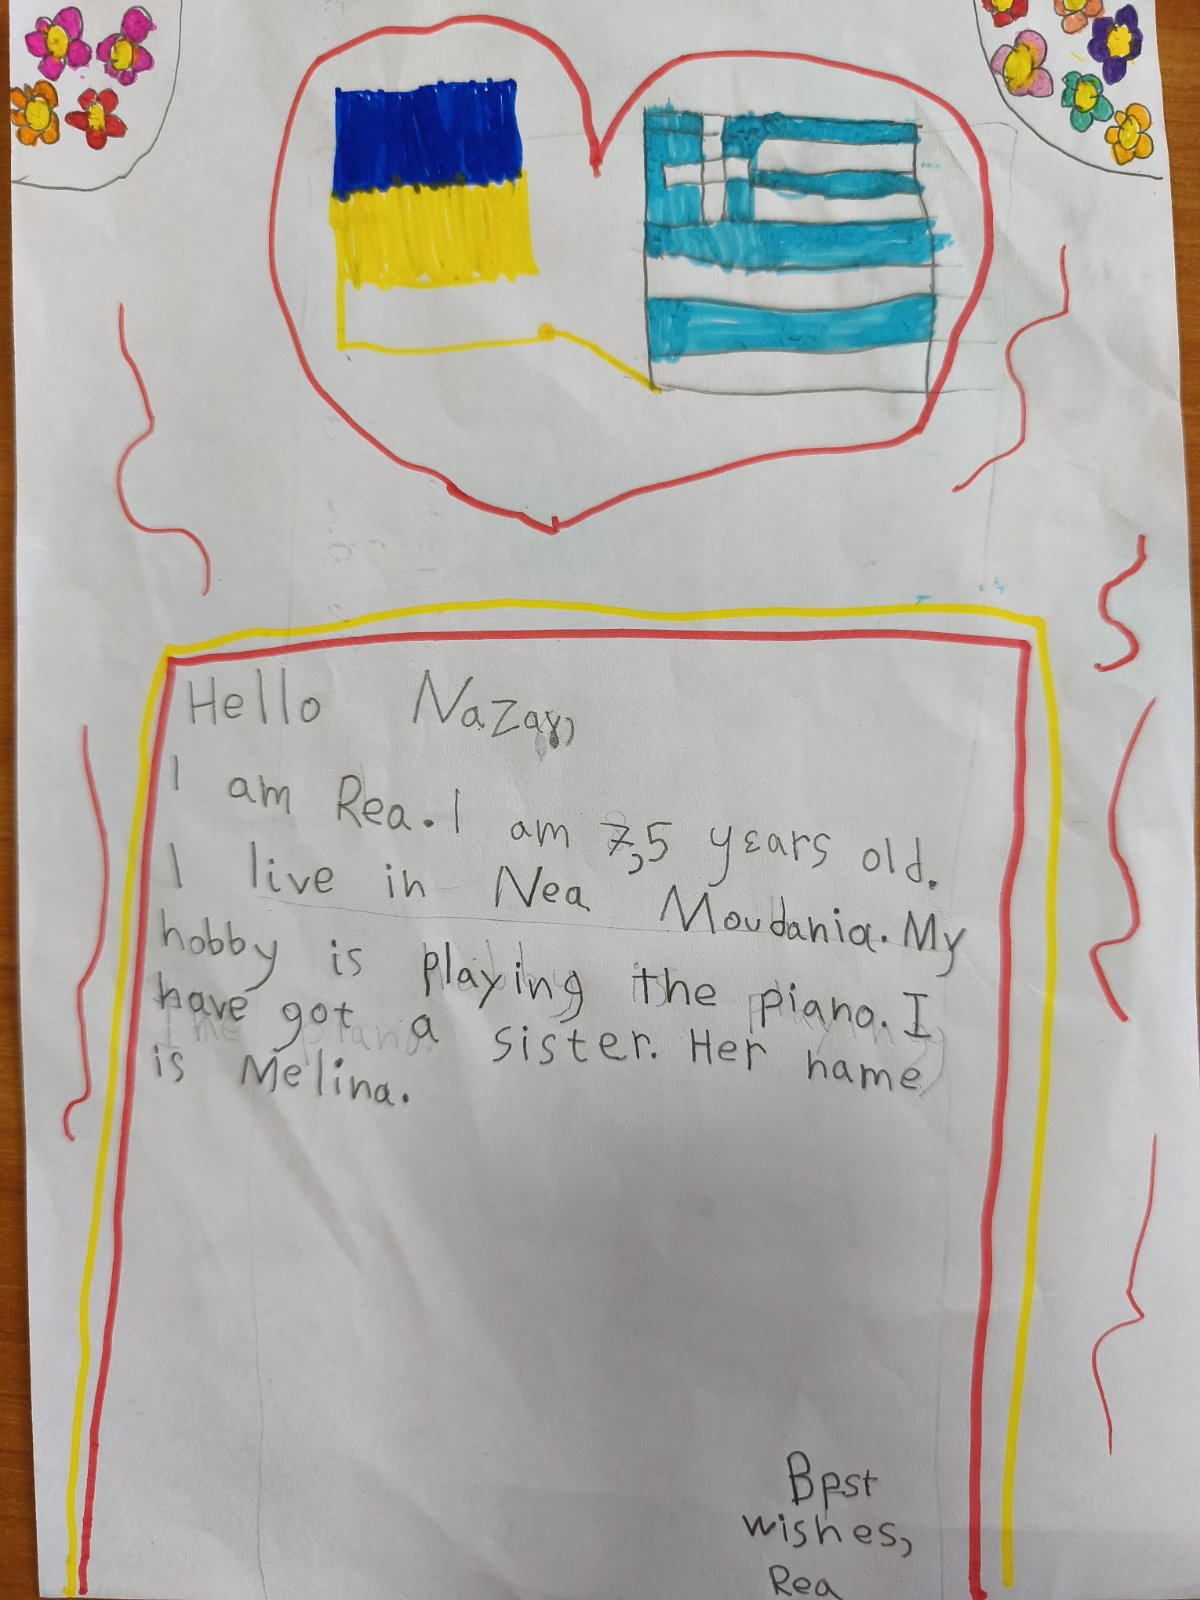 Hello Nazar,
I am Rea. I am 7,5 years old.
I live in Nea Moudania. My
hobby is playing the piano. I
have got a sister. Her name
is Melina.
Best
wishes,
Rea